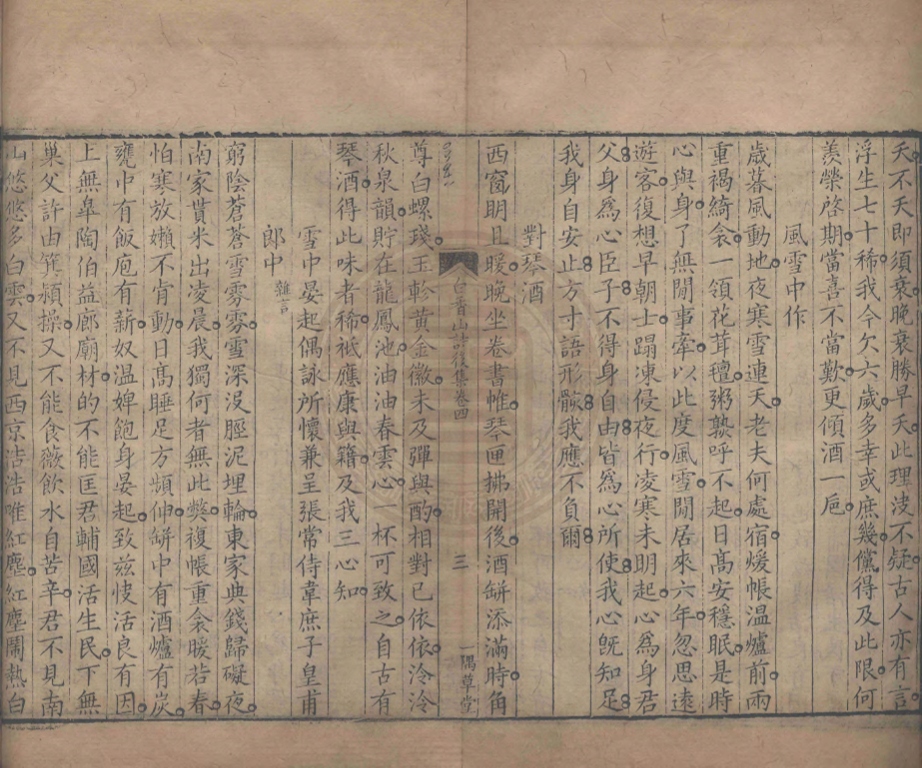 夭不夭即須衰晚衰勝早夭此理决不疑古人亦有言
浮生七十稀我今欠六歲多幸或庶幾儻得及此限何
羨榮啓期當喜不當歎更傾酒一巵
風雪中作
歲暮風動地夜寒雪連天老夫何處宿煖帳温爐前兩
重褐綺衾一領花茸氊粥熟呼不起日高安穩眠是時
心與身了無閒事牽以此度風雪閒居來六年忽思遠
遊客復想早朝士蹋凍侵夜行凌寒未明起心爲身君
父身爲心臣子不得身自由皆爲心所使我心旣知足
我身自安止方寸語形骸我應不負爾
對琴酒
西窗明且暖晚坐卷書帷琴匣拂開後酒缾添滿時角
白香山詩後集卷四
三
一隅草堂
尊白螺琖玉軫黄金徽未及彈與酌相對已依依泠泠
秋泉韻貯在龍鳳池油油春雲心一杯可致之自古有
琴酒得此味者稀祗應康與籍及我三心知
雪中晏起偶詠所懷兼呈張常侍韋庶子皇甫
郎中雜言
窮陰蒼蒼雪雰雰雪深沒脛泥埋輪東家典錢歸礙夜
南家貰米出凌晨我獨何者無此弊複帳重衾暖若春
怕寒放嬾不肯動日高睡足方頻伸缾中有酒爐有炭
甕中有飯庖有薪奴温婢飽身晏起致茲快活良有因
上無臯陶伯益廊廟材的不能匡君輔國活生民下無
巢父許由箕潁操又不能食薇飲水自苦辛君不見南
山悠悠多白雲又不見西京浩浩唯紅塵紅塵鬧熱白